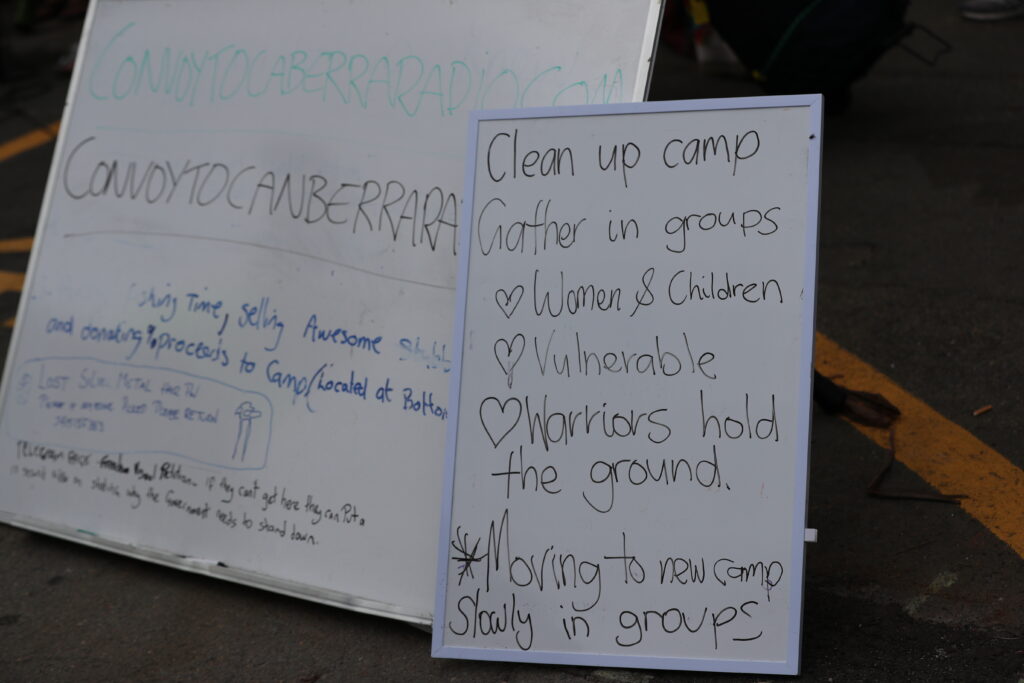 CONVOYTOCABERRARADIO.COM
CONVOYTOCANBERRARA
Time, selling Awesome
and donating % proceeds to Camp (Located at Bottom
LOST SILVER METAL HAIR PIN
RETURN
if they can't get here they can Put a
why the Government needs to stand down.
Clean up camp
Gather in groups
♡ Women & Children
♡ Vulnerable
♡ Warriors hold
the ground.
* Moving to new camp
slowly in groups